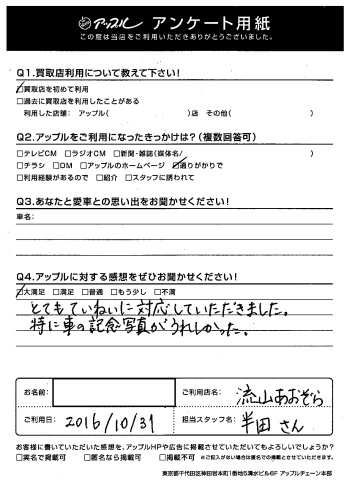 アップル アンケート用紙
この度は当店をご利用いただきありがとうございました。
Q1.買取店利用について教えて下さい!
☑買取店を初めて利用
□過去に買取店を利用したことがある
利用した店舗: アップル( )店 その他( )
Q2.アップルをご利用になったきっかけは?(複数回答可)
□テレビCM □ラジオCM □新聞・雑誌(媒体名/ )
□チラシ □DM □アップルのホームページ ☑通りがかりで
□利用経験があるので □紹介 □スタッフに誘われて
Q3.あなたと愛車との思い出をお聞かせください!
車名:
Q4.アップルに対する感想をぜひお聞かせください!
☑大満足 □満足 □普通 □もう少し □不満
とてもていねいに対応していただきました。
特に車の記念写真がうれしかった。
お名前: ご利用店名: 流山あおぞら
ご利用日: 2016/10/31 担当スタッフ名: 半田さん
お客様に書いていただいた感想を、アップルHPや広告に掲載させていただいてもよろしいでしょうか?
□実名で掲載可 □匿名なら掲載可 □掲載不可 ※ご記入がない場合は匿名での掲載とさせていただきます。
東京都千代田区神田岩本町1番地5清水ビル6F アップルチェーン本部